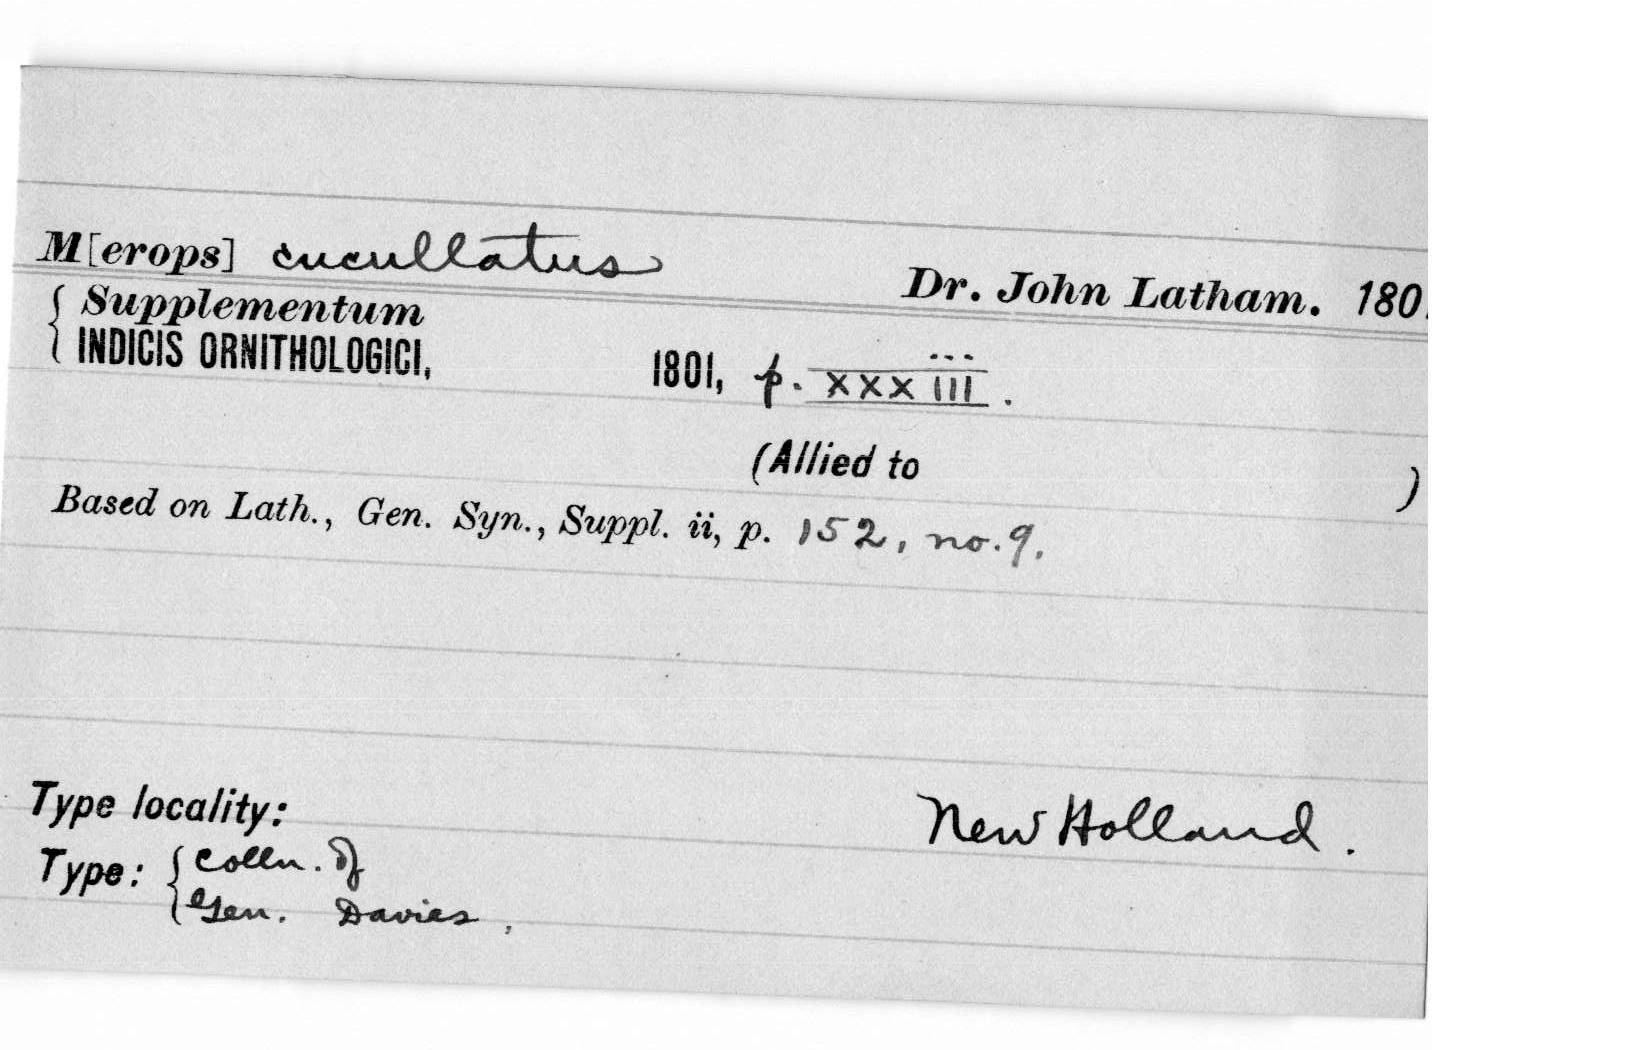 M[erops] cucullatus
Dr. John Latham. 180
{ Supplementum
INDICIS ORNITHOLOGICI, 1801, p. xxxiii.
(Allied to )
Based on Lath., Gen. Syn., Suppl. ii, p. 152, no. 9.
Type locality: New Holland.
Type: { Colln. of
Gen. Davies.